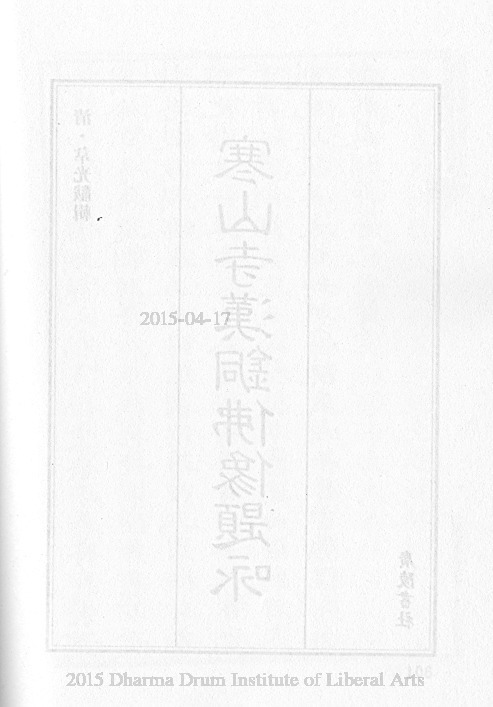 清·光輯
寒山寺漢銅佛像題咏
廣陵書社
2015-04-17
2015 Dharma Drum Institute of Liberal Arts